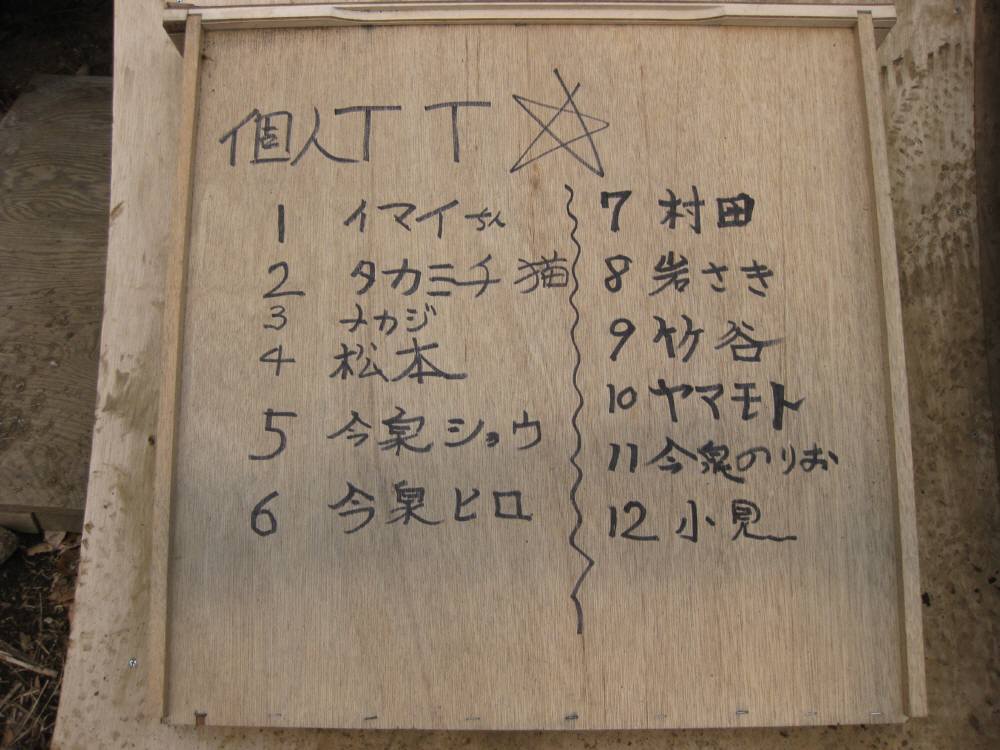 個人TT
1 イマイちん
2 タカミチ猫
3 ナカジ
4 松本
5 今泉ショウ
6 今泉ヒロ
7 村田
8 岩さき
9 竹谷
10 ヤマモト
11 今泉のりお
12 小見